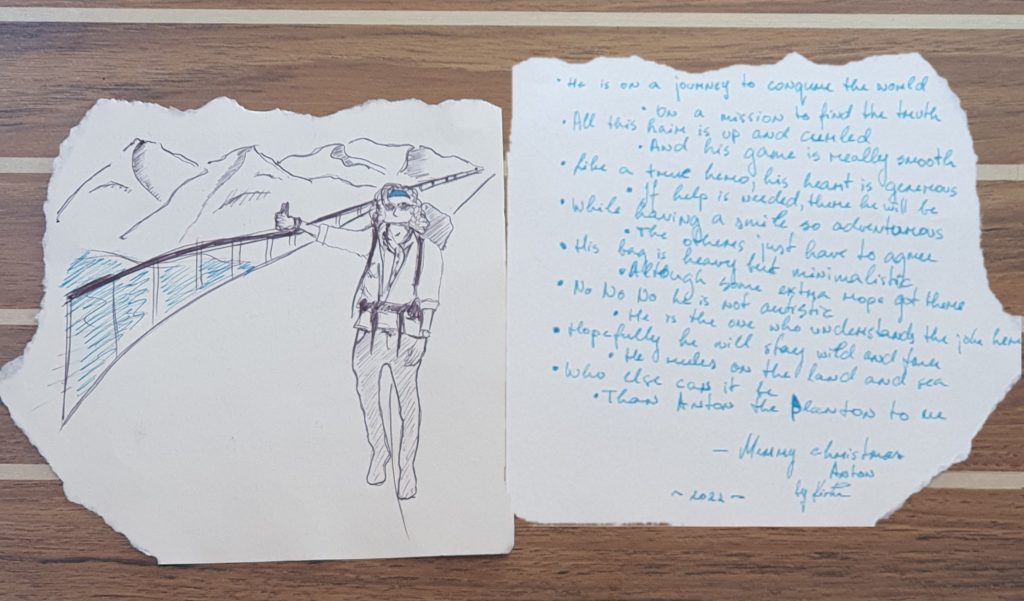 • He is on a journey to conquere the world
• On a mission to find the truth
• All this hair is up and curled
• And his game is really smooth
• Like a true hero, his heart is generous
• If help is needed, there he will be
• While having a smile so adventurous
• The others just have to agree
• His bag is heavy but minimalistic
• Although some extra rope got there
• No No No he is not autistic
• He is the one who understands the joke here
• Hopefully he will stay wild and free
• He rules on the land and sea
• Who else can it be
• Than Anton the planton to me
— Merry christmas
Anton
by
~ 2022 ~